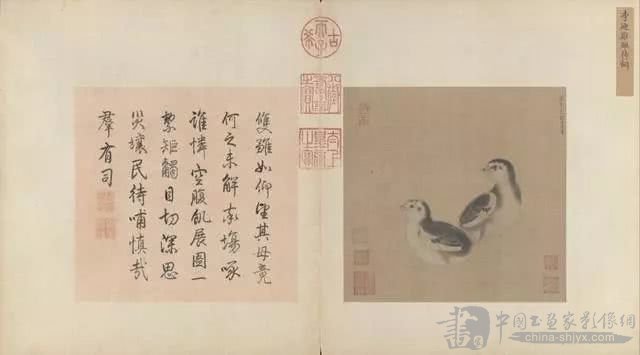 李迪雞雛待飼
古希天子
雙雛如仰望其母竟
何之未解率場啄
誰憐空腹飢展圖一
絜矩觸目切深思
災壤民待哺慎哉
羣有司
中國书画家影像網
www.china-shjyx.com